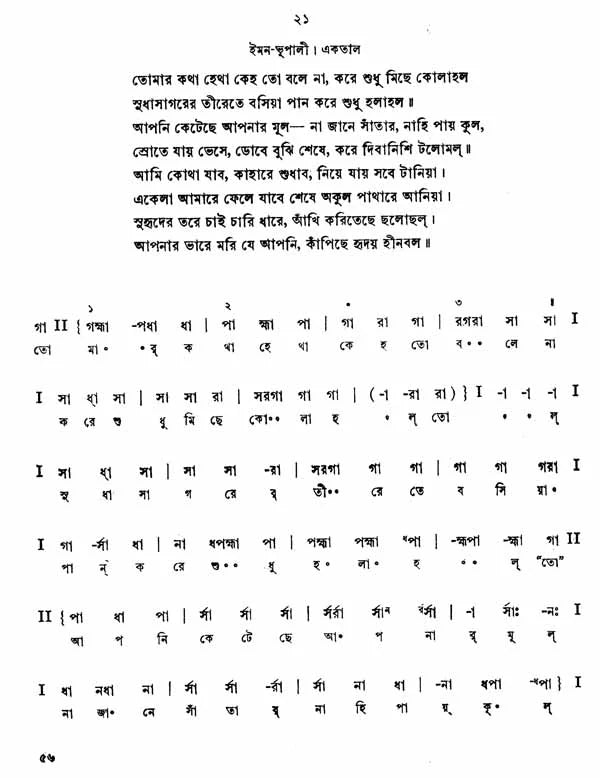 ২১
ইমন-ভূপালী। একতাল
তোমার কথা হেথা কেহ তো বলে না, করে শুধু মিছে কোলাহল
সুধাসাগরের তীরেতে বসিয়া পান করে শুধু হলাহল॥
আপনি কেটেছে আপনার মূল— না জানে সাঁতার, নাহি পায় কূল,
স্রোতে যায় ভেসে, ডোবে বুঝি শেষে, করে দিবানিশি টলোমল্॥
আমি কোথা যাব, কাহারে শুধাব, নিয়ে যায় সবে টানিয়া।
একেলা আমারে ফেলে যাবে শেষে অকূল পাথারে আনিয়া।
সুহৃদের তরে চাই চারি ধারে, আঁখি করিতেছে ছলোছল্।
আপনার ভারে মরি যে আপনি, কাঁপিছে হৃদয় হীনবল॥
১ ২ ৩ ॥
গা II { গহ্মা -পধা ধা | পা হ্মা পা | গা রা গা | রগরা সা সা I
তো মা॰ ॰ র্ ক থা হে থা কে হ তো ব॰॰ লে না
I সা ধ্া সা | সা সা রা | সরগা গা গা | (-া -রা রা) } I -া -া -া I
ক রে শু ধু মি ছে কো॰॰ লা হ ॰ ল্ তো ॰ ॰ ল্
I সা ধ্া সা | সা সা -রা | সরগা গা গা | গা গা গরা I
সু ধা সা গ রে র্ তী॰॰ রে তে ব সি য়া॰
I গা -র্সা ধা | না ধপহ্মা পা | পহ্মা পহ্মা ধপা | -হ্মপা -হ্মা গা II
পা ন্ ক রে শু॰॰ ধু হ॰ লা॰ হ ॰॰ ল্ "তো"
II { পা ধা পা | র্সা র্সা র্সা | র্সর্রা র্সা র্সা | -া র্সাঃ -নঃ I
আ প নি কে টে ছে আ॰ প না র্ মূ ল্
I ধা নধা না | র্সা র্সা -র্রা | র্সা না ধা | -না ধপা -ধপা } I
না জা॰ নে সাঁ তা র্ না হি পা য়্ কূ॰ ল্
৫৬